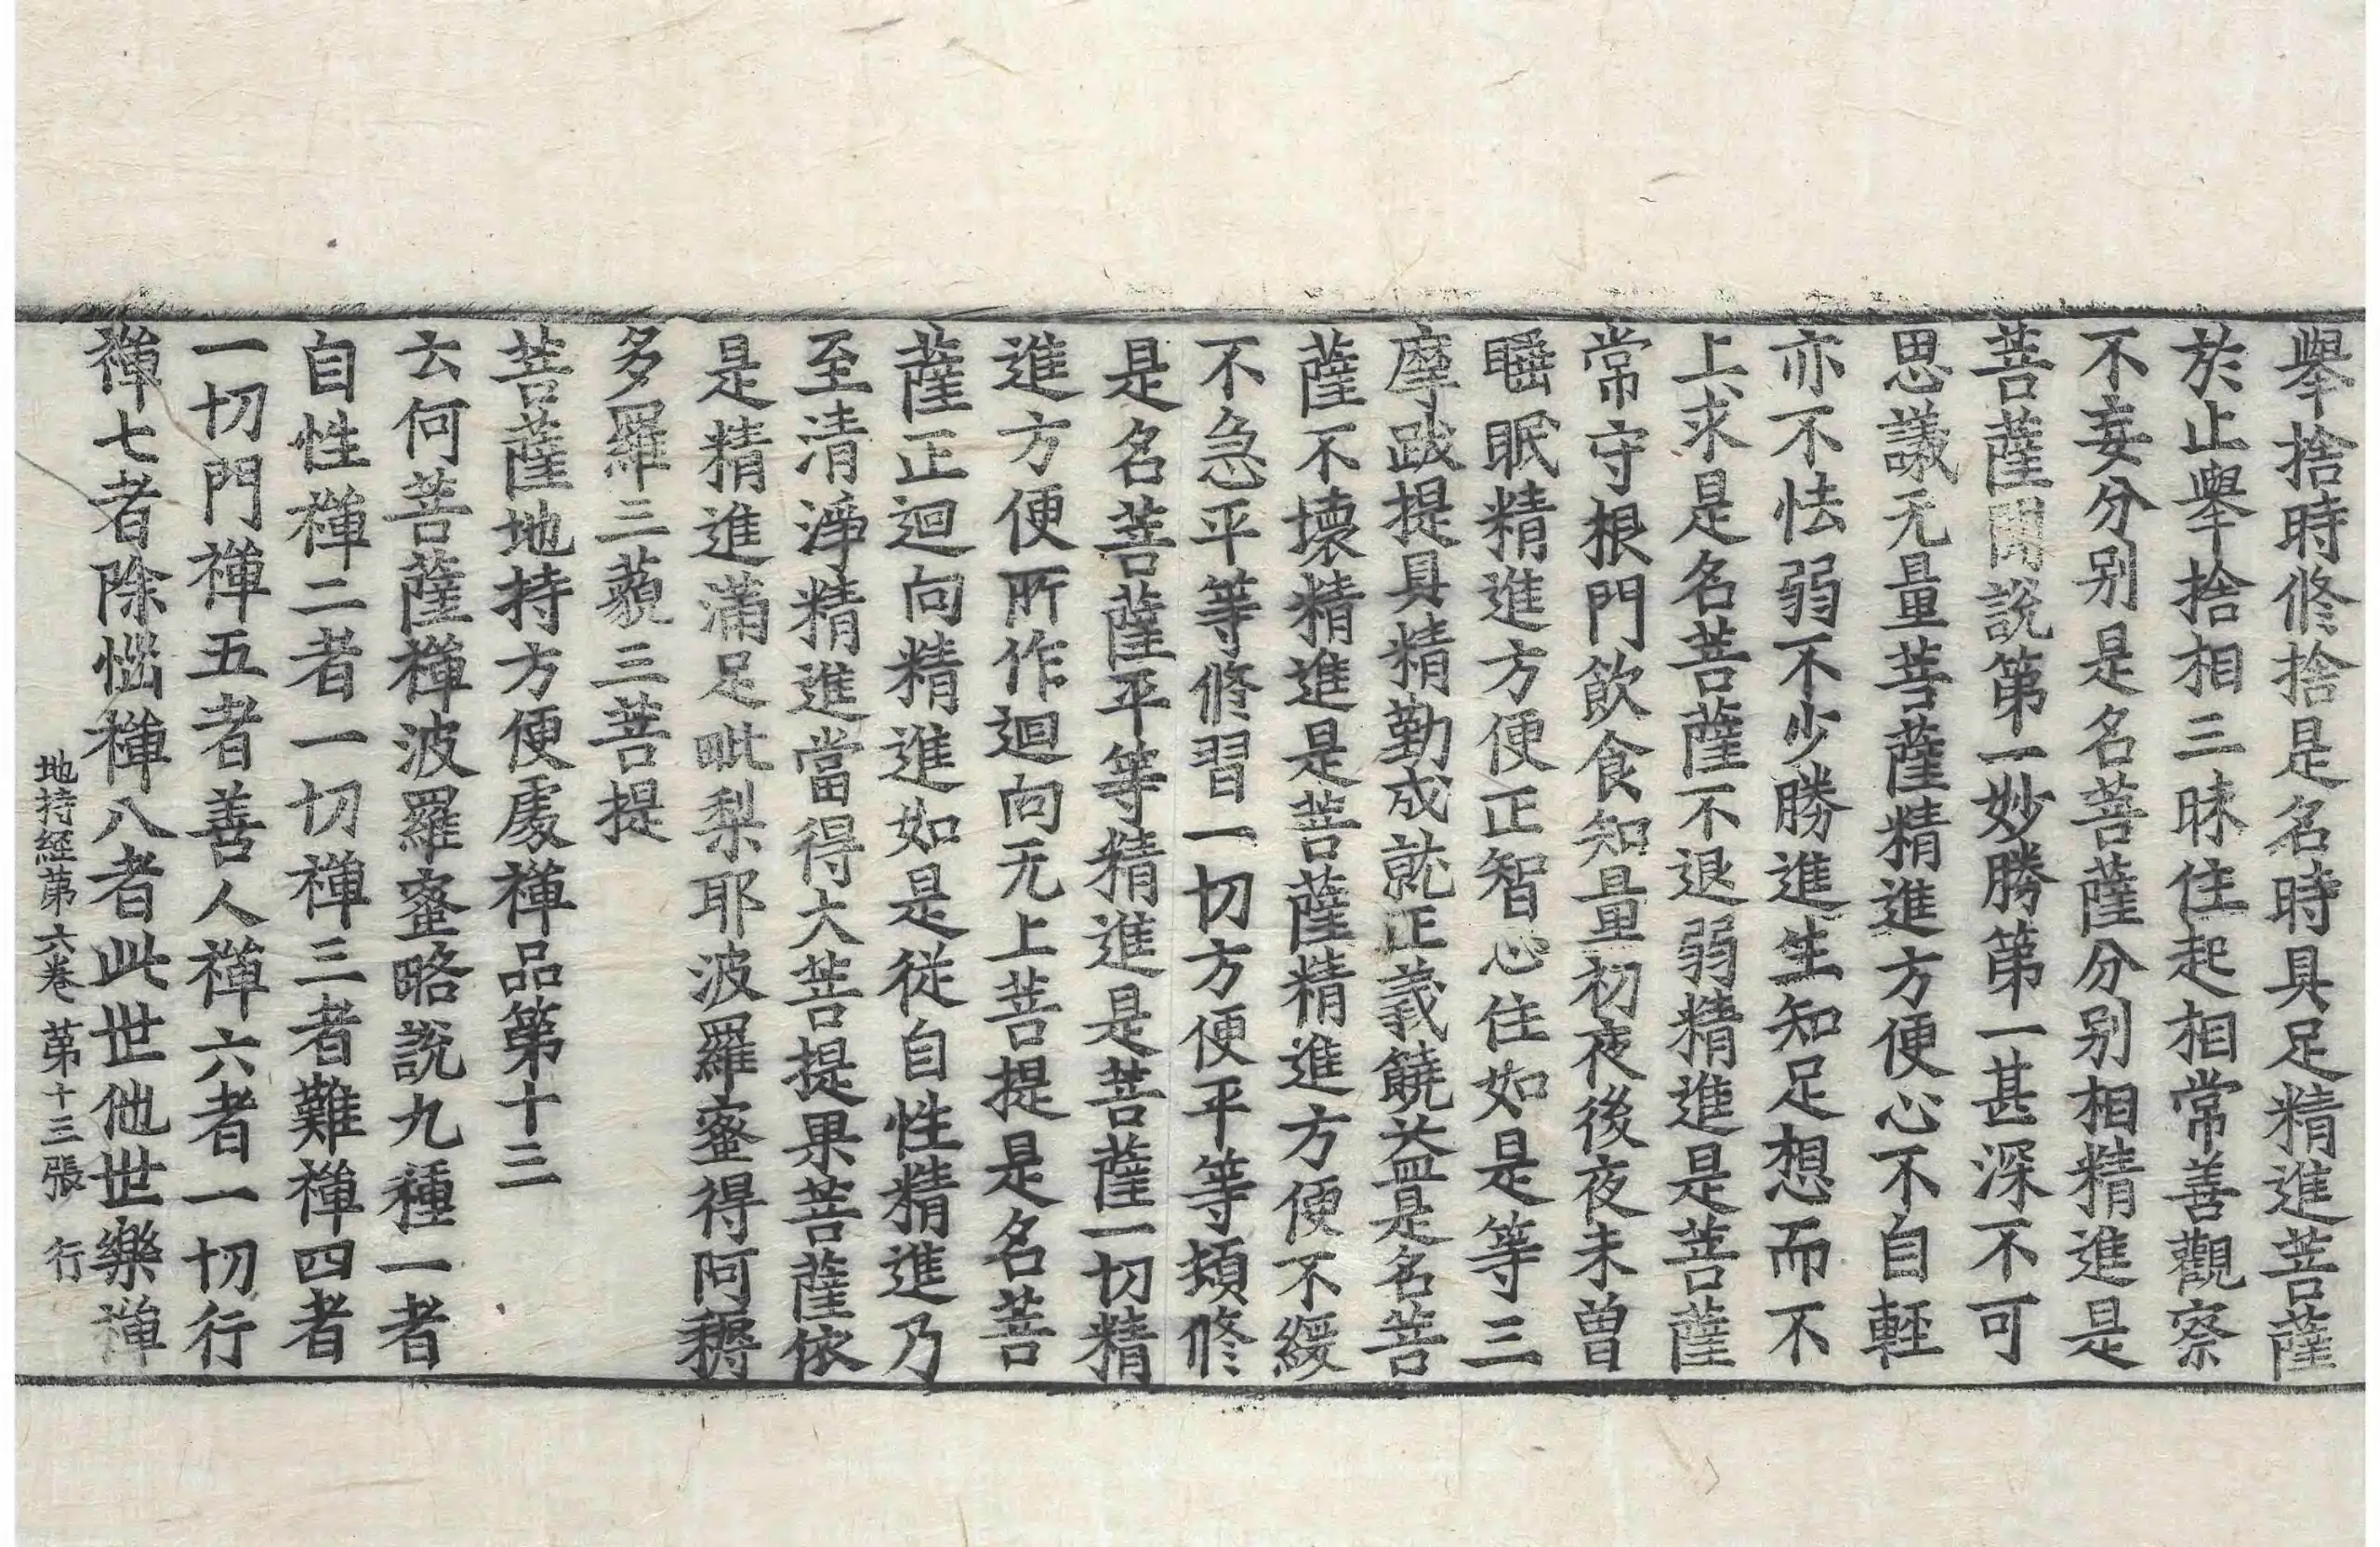 舉捨時修捨是名時具足精進菩薩
於止舉捨相三昧住起相常善觀察
不妄分別是名菩薩分別相精進是
菩薩聞說第一妙勝第一甚深不可
思議无量菩薩精進方便心不自輕
亦不怯弱不少勝進生知足想而不
上求是名菩薩不退弱精進是菩薩
常守根門飲食知量初夜後夜未曾
睡眠精進方便正智心住如是等三
摩跋提具精勤成就正義饒益是名菩
薩不壞精進是菩薩精進方便不緩
不急平等修習一切方便平等類修
是名菩薩平等精進是菩薩一切精
進方便所作迴向无上菩提是名菩
薩正迴向精進如是從自性精進乃
至清淨精進當得大菩提果菩薩依
是精進滿足毗梨耶波羅蜜得阿耨
多羅三藐三菩提
菩薩地持方便處禪品第十三
云何菩薩禪波羅蜜略說九種一者
自性禪二者一切禪三者難禪四者
一切門禪五者善人禪六者一切行
禪七者除惱禪八者此世他世樂禪
地持經第六卷 第十三張 行